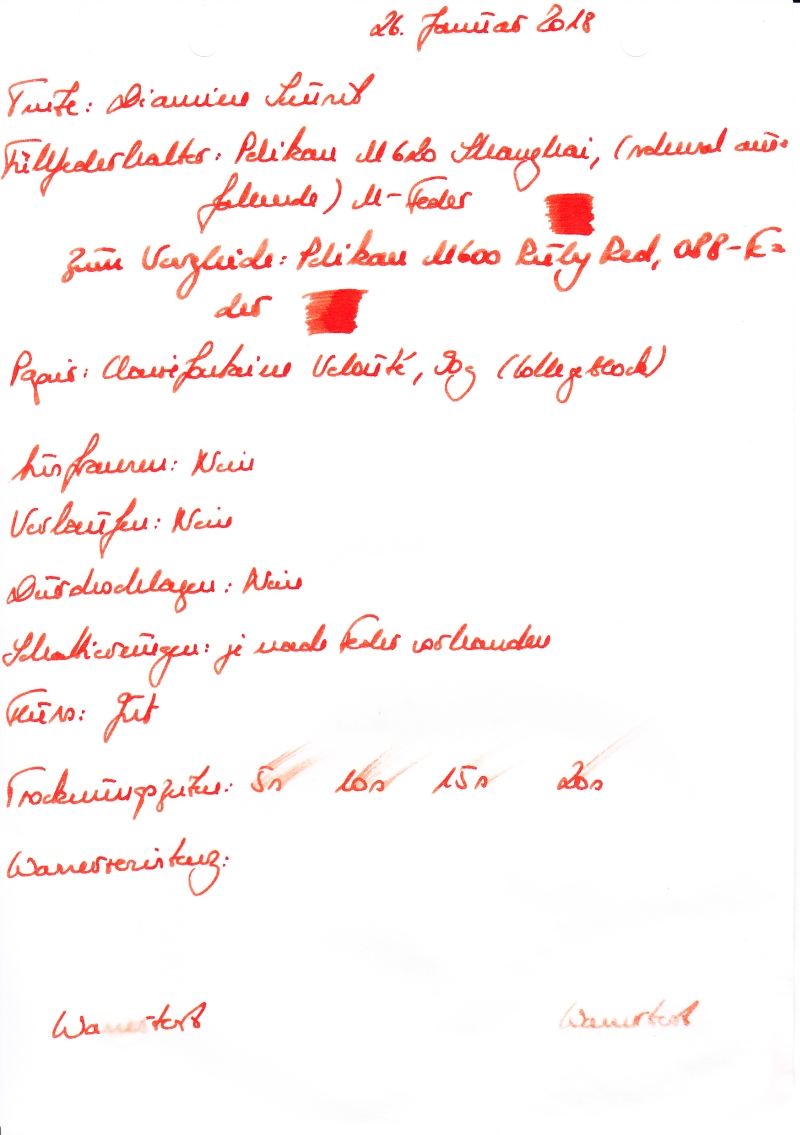 26. Januar 2018
Tinte: Diamine Sunset
Füllfederhalter: Pelikan M620 Shanghai, (normal aus-
fallende) M-Feder
Zum Vergleich: Pelikan M600 Ruby Red, OBB-Fe=
der
Papier: Clairefontaine Velouté, 90g (Collegeblock)
Ausfransen: Nein
Verlaufen: Nein
Durchschlagen: Nein
Schattierungen: je nach Feder vorhanden
Fluss: Gut
Trocknungszeiten: 5s 10s 15s 20s
Wasserresistenz:
Wassertest Wassertest